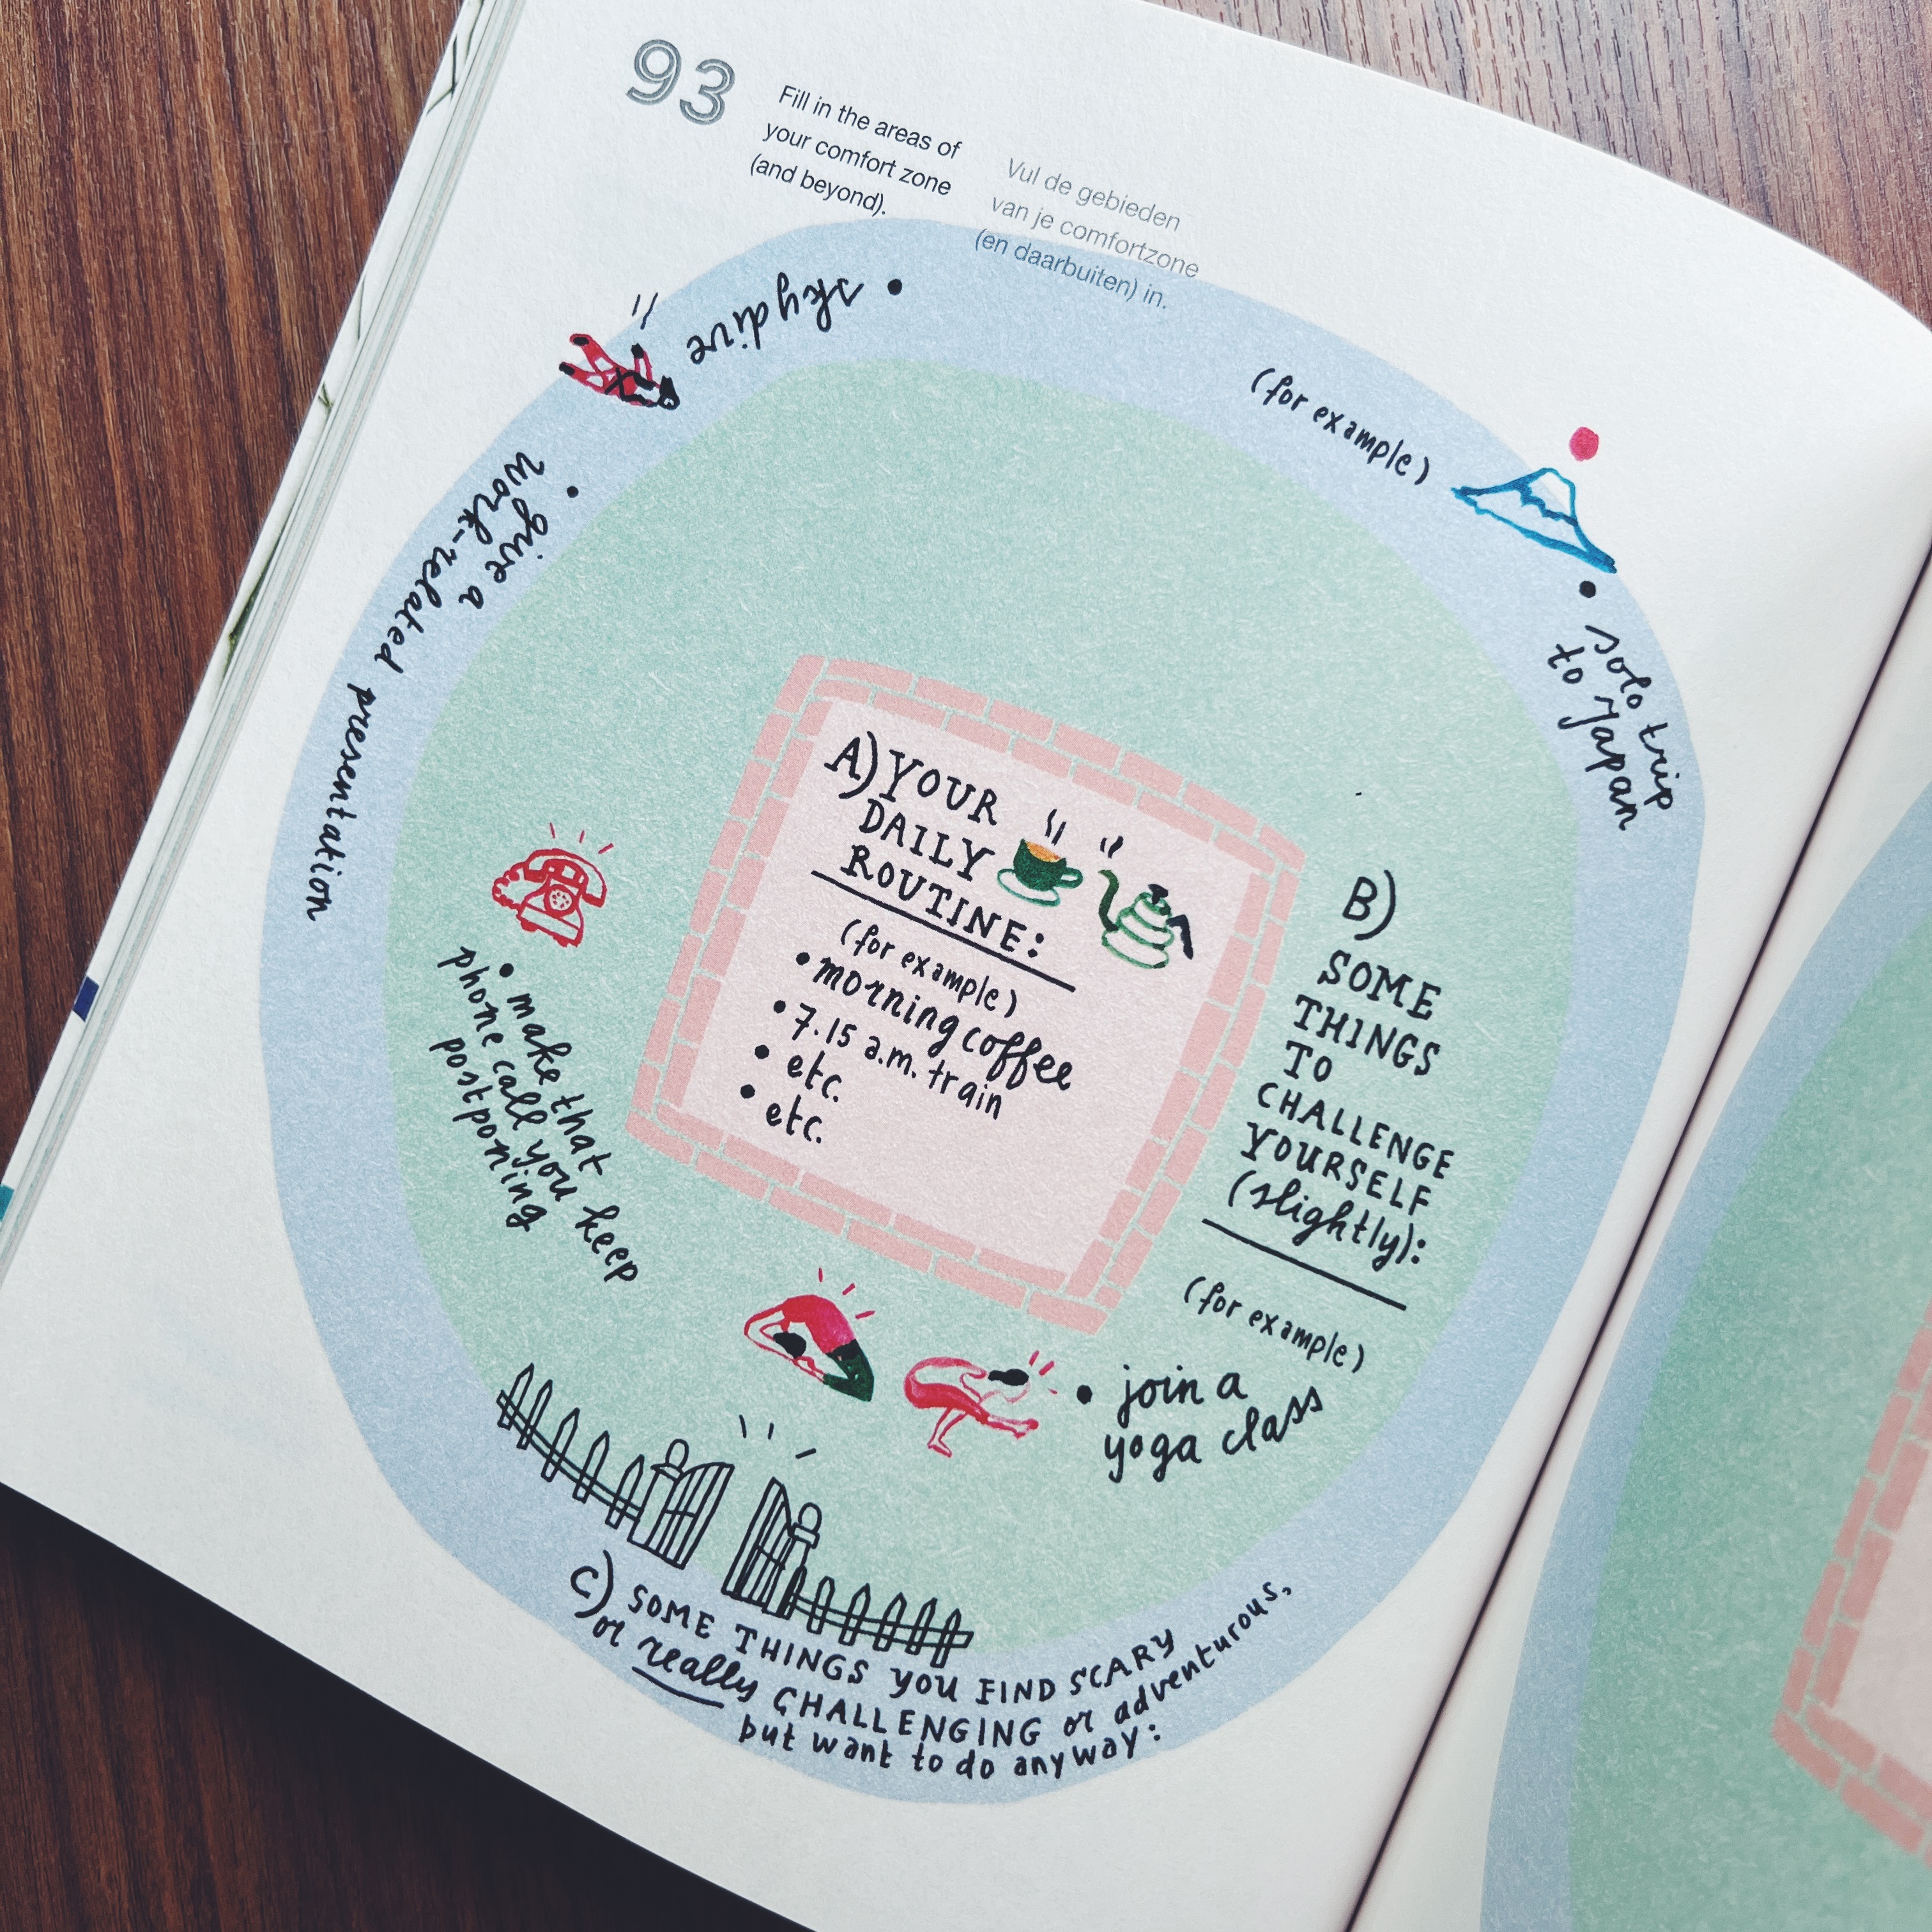 93
Fill in the areas of
your comfort zone
(and beyond).
Vul de gebieden
van je comfortzone
(en daarbuiten) in.
A) YOUR
DAILY
ROUTINE:
(for example)
• morning coffee
• 7.15 a.m. train
• etc.
• etc.
B)
SOME
THINGS
TO
CHALLENGE
YOURSELF
(slightly):
(for example)
• join a
yoga class
• make that
phone call you keep
postponing
C) SOME THINGS YOU FIND SCARY
or really CHALLENGING or adventurous,
but want to do anyway:
• give a
work-related presentation
• skydive
(for example)
• solo trip
to Japan